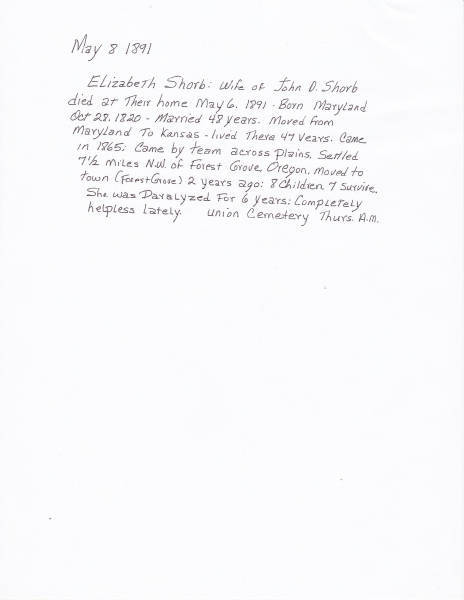 May 8 1891
Elizabeth Shorb: Wife of John D. Shorb
died at Their home May 6, 1891 - Born Maryland
Oct 28, 1820 - Married 48 years. Moved from
Maryland To Kansas - lived There 47 Years. Came
in 1865; Came by team across Plains. Settled
7 1/2 miles N.W. of Forest Grove, Oregon, moved to
town (Forest Grove) 2 years ago: 8 Children, 7 Survive.
She was Paralyzed For 6 years; Completely
helpless lately. Union Cemetery Thurs. A.M.